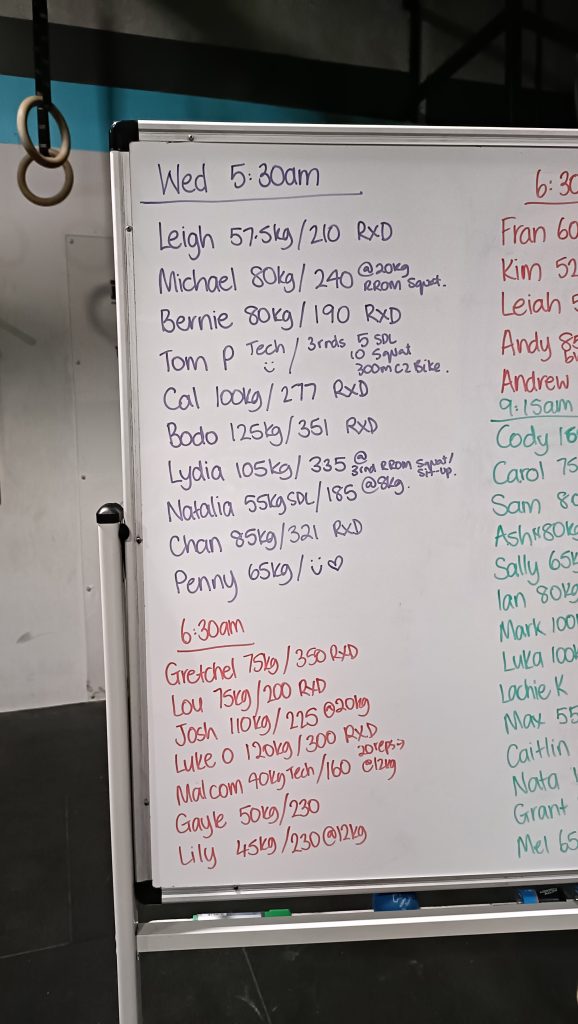 Wed 5:30am
Leigh 57.5kg/210 RXD
Michael 80kg/240 @20kg RROM Squat.
Bernie 80kg/190 RXD
Tom P Tech / 3rnds 5 SDL
10 Squat
300m C2 Bike.
Cal 100kg/277 RXD
Bodo 125kg/351 RXD
Lydia 105kg/335 @ 3rnd RROM Squat/
Sit-up.
Natalia 55kg SDL/185 @8kg.
Chan 85kg/321 RXD
Penny 65kg/ ü♡
6:30am
Gretchel 75kg/350 RXD
Lou 75kg/200 RXD
Josh 110kg/225 @20kg
Luke O 120kg/300 RXD
Malcom 40kg Tech/160 20reps→
@12kg
Gayle 50kg/230
Lily 45kg/230 @12kg
6:30
Fran 60
Kim 52
Leiah 5
Andy 85
Andrew
9:15am
Cody
Carol 75
Sam 80
Ash 80kg
Sally 65k
Ian 80kg
Mark 100
Luka 100k
Lachie K
Max 55
Caitlin
Nata
Grant
Mel 65